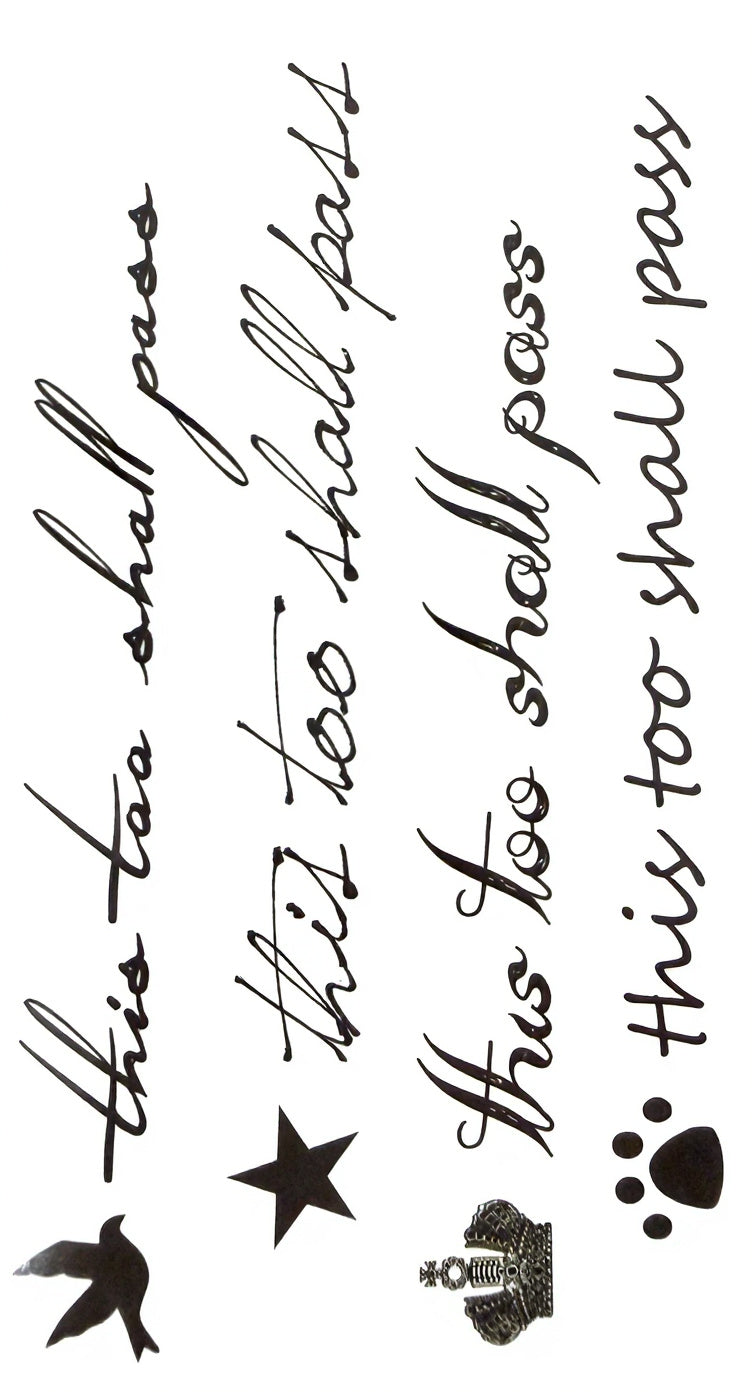 this too shall pass
this too shall pass
this too shall pass
this too shall pass